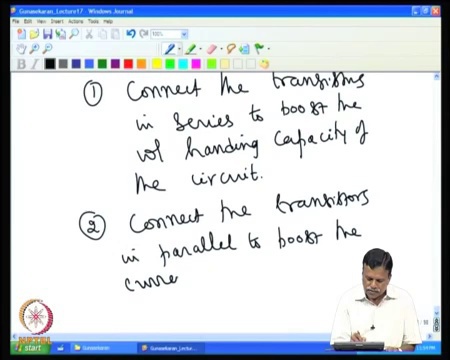 Gunasekaran_Lecture17 - Windows Journal
File Edit View Insert Actions Tools Help
100%
① Connect the transistors
in series to boost the
vol handing capacity of
the circuit.
② Connect the transistors
in parallel to boost the
curre
NPTEL
start Gunasekaran Gunasekaran_Lectu...